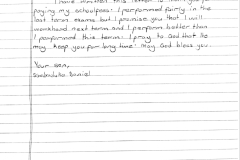 I have written this letter to
paying my schoolfees. I performed fairly in the
last term exams but I promise you that I will
workhard next term and I perform better than
I performed this term. I pray to God that He
may keep you for long time. May God bless you
Your son,
Daniel